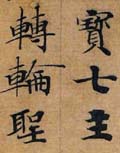 寶七主
轉輪聖